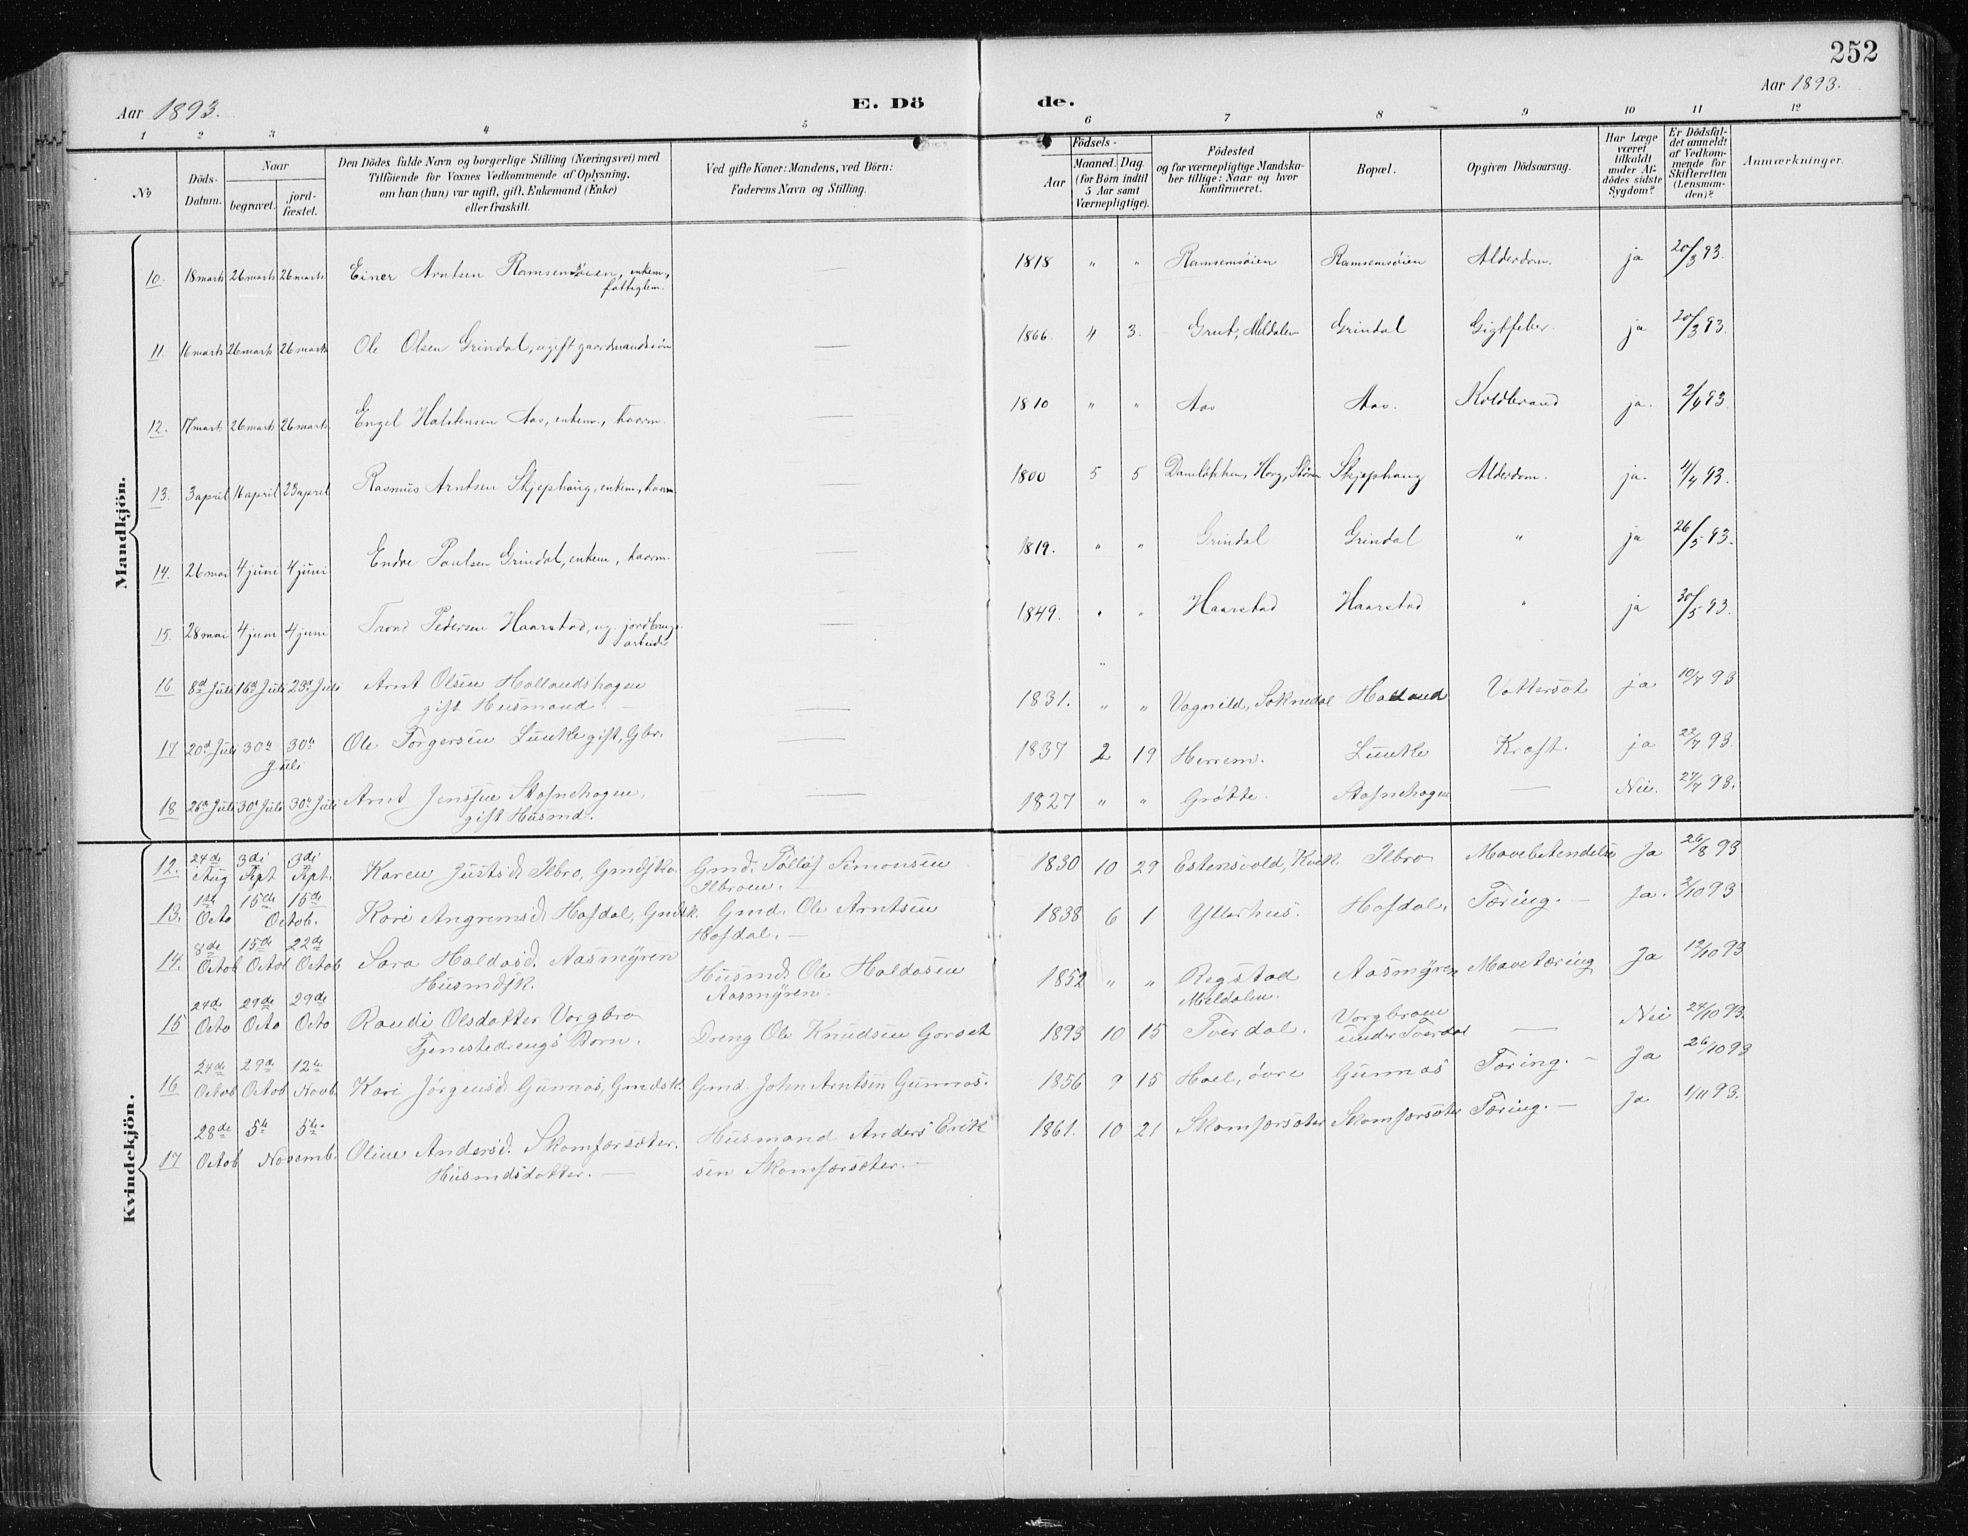 252
Aar 1893.
E. Dö de.
Aar 1893.
1 2 3 4 5 6 7 8 9 10 11 12
No.
Döds-Datum.
Naar
begravet.
jordfæstet.
Den Dödes fulde Navn og borgerlige Stilling (Næringsvei) med
Tilföiende for Voxnes Vedkommende af Oplysning,
om han (hun) var ugift, gift, Enkemand (Enke)
eller fraskilt.
Ved gifte Koner: Mandens, ved Börn:
Faderens Navn og Stilling.
Födsels-
Aar
Maaned. Dag.
(for Börn indtil
5 Aar samt
Værnepligtige).
Födested
og for værnepligtige Mandska-
ber tillige: Naar og hvor
konfirmeret.
Bopæl.
Opgiven Dödsaarsag.
Har Læge
været
tilkaldt
under Af-
dödes sidste
Sygdom?
Er Dödsfal-
det anmeldt
af Vedkom-
mende for
Skifteretten
(Lensman-
den)?
Anmærkninger.
Mandkjön.
10. 18 marts 26 marts 26 marts Einer Arntsen Ramsemsöien, enkem, fattiglem. 1818 " " Ramsemsöien Ramsemsöien Alderdom. ja 20/3 93.
11. 16 marts 26 marts 26 marts Ole Olsen Grindal, ugift gaardmandssön — 1866. 4 3. Grut, Meldalen Grindal Gigtfeber. ja 20/3 93.
12. 17 marts 26 marts 26 marts Engel Halstensen Aas, enkem., kaarm. — 1810 " " Aas Aas. Koldbrand ja. 2/4 93.
13. 3 april 16 april 23 april Rasmus Arntsen Skjephaug, enkem., kaarm. — 1800 5 5 Horg, Stören Skjephaug Alderdom. ja. 4/4 93.
14. 26 mai 4 juni 4 juni Endre Paulsen Grindal, enkem., kaarm. — 1819. " " Grindal Grindal " ja 26/5 93.
15. 28 mai 4 juni 4 juni Trond Pedersen Haarstad, ug. jordbrugs-
arbeider — 1849. " " Haarstad Haarstad " ja 30/5 93.
16 8de Juli 16de Juli 23de Juli Arnt Olsen Hollandshagen
gift Husmand — 1831. " " Vagnild, Soknedal Holland Vattersot ja 10/7 93
17 20de Juli 30te Juli 30te Ole Torgersen Lunke gift, Gbr. — 1837 2 19 Herrem. Lunke Kræft. ja 22/7 93.
18 26de Juli 30te Juli 30te Juli Arnt Jenssen Stofnehagen,
gift Husmd. — 1827 " " Grötte. Stofnehagen — Nei. 27/7 93.
Kvindekjön.
12. 24de Aug 3die Sept 3die Sept. Karen Justsd. Ilbro, Gmdsko. Gmd. Tölløf Simonsen
Ilbroen. — 1830 10 29 Estensvold, Kvik. Ilbro Mavebetendelse Ja 26/8 93
13. 1ste Octo 15de 15de Octob. Kari Angremsd. Hofdal, Gmdsk. Gmd. Ole Arntsen
Hofdal. — 1838 6 1 Ytterhus. Hofdal. Tæring. — Ja. 3/10 93
14. 8de Octob 15de Octob 22de Octob Sara Haldosd. Aasmyren
Husmdsk. Husmd. Ole Haldosen
Aasmyren. 1852 " " Regstad
Meldalen. Aasmyren Mavetæring Ja 12/10 93
15 24de Octo 29de Octo 29de Octo Randi Olsdatter Vorgbro
Tjenestedrengs Barn. Dreng Ole Knudsen Gorset 1893 10 15 Tverdal. Vorgbroen
under Tverdal — Nei 24/10 93.
16 24de Octob 29de Octob 12te Novb. Kari Jörgensd. Gunnes, Gmdsk. Gmd. John Arntsen Gunnes. 1856 9 15 Hoel, övre Gunnes Tæring. — Ja 26/10 93
17 28de Octob 5te 5te Novemb. Oline Andersd. Skomfærsæter,
Husmdsdatter. — Husmand Anders Erik
sen Skomfærsæter. — 1861. 10 21 Skomfærsæter Skomfærsæter Tæring. — Ja 1/11 93.